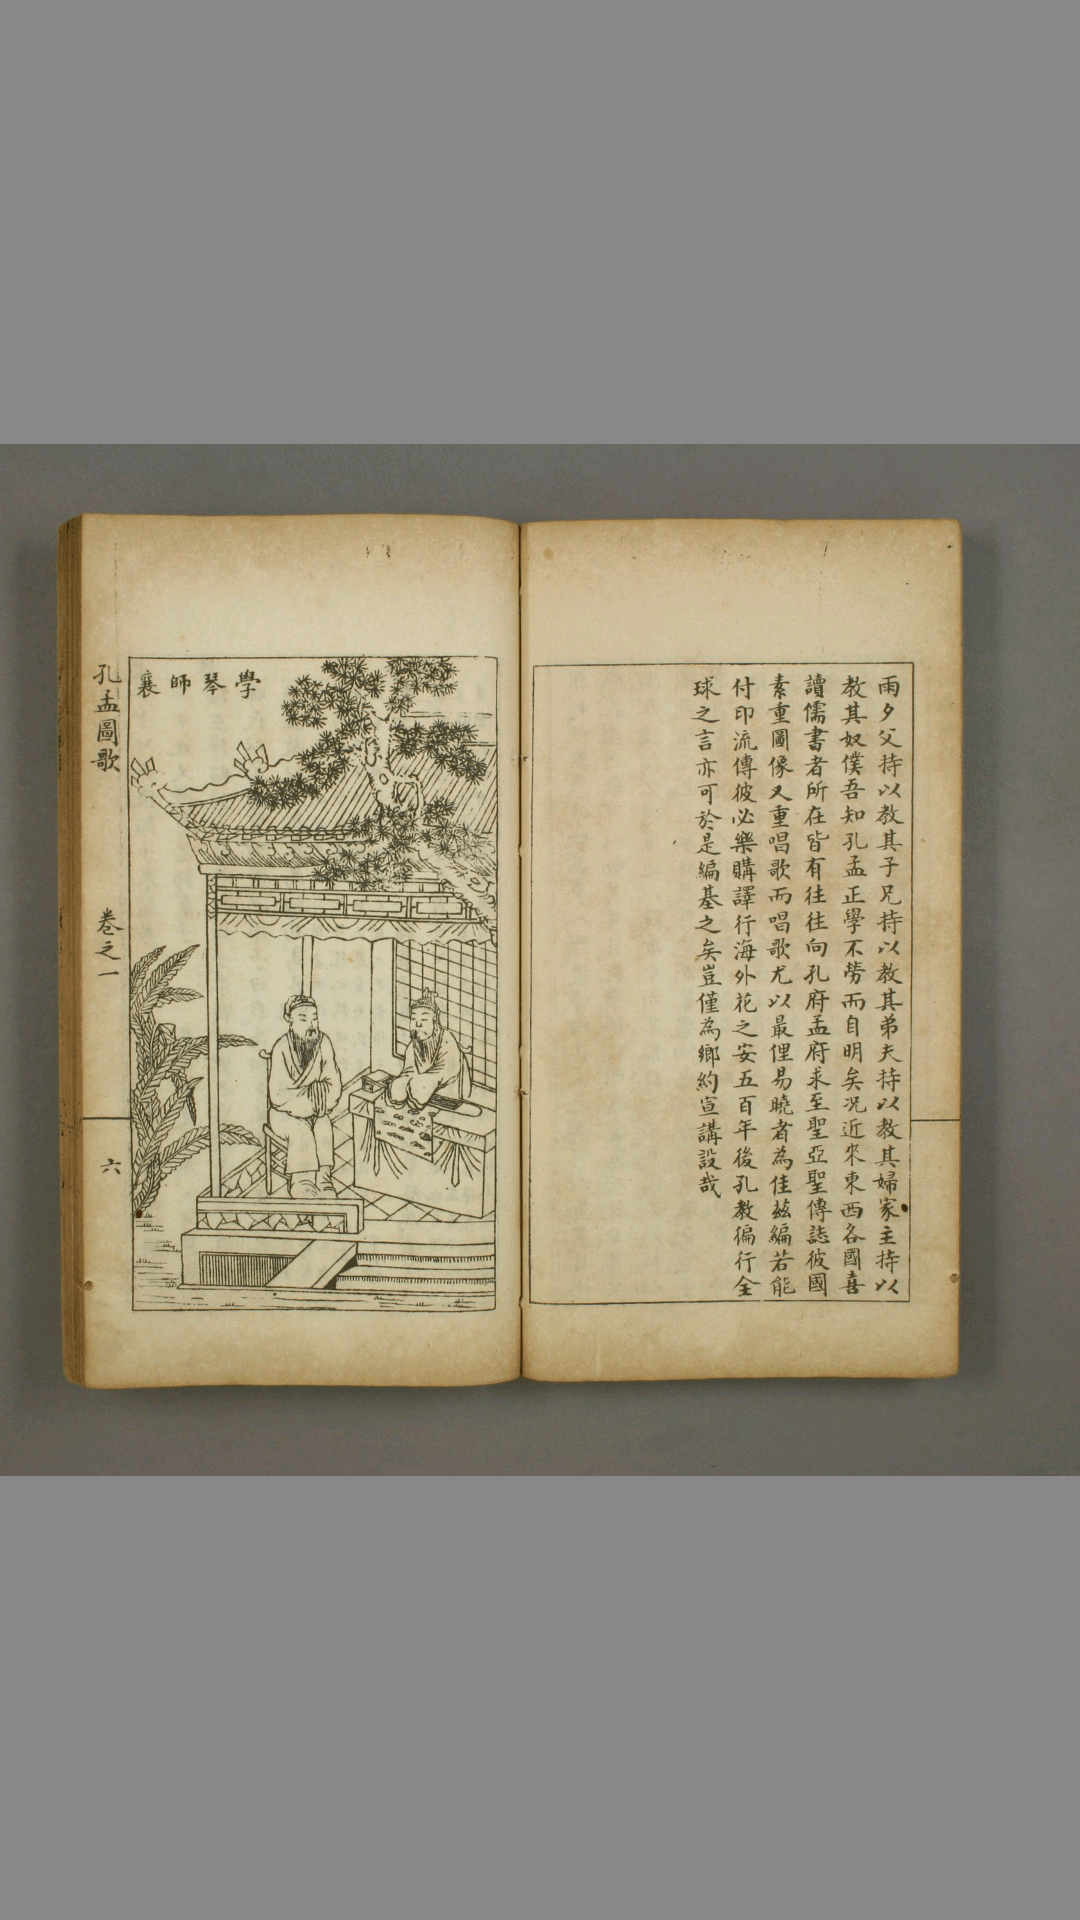 雨夕父持以教其子兄持以教其弟夫持以教其婦家主持以
教其奴僕吾知孔孟正學不勞而自明矣況近來東西各國喜
讀儒書者所在皆有往往向孔府孟府求至聖亞聖傳誌彼國
素重圖像又重唱歌而唱歌尤以最俚易曉者為佳茲編若能
付印流傳彼必樂購譯行海外花之安五百年後孔教徧行全
球之言亦可於是編基之矣豈僅為鄉約宣講設哉
學琴師襄
孔孟圖歌
卷之一
六